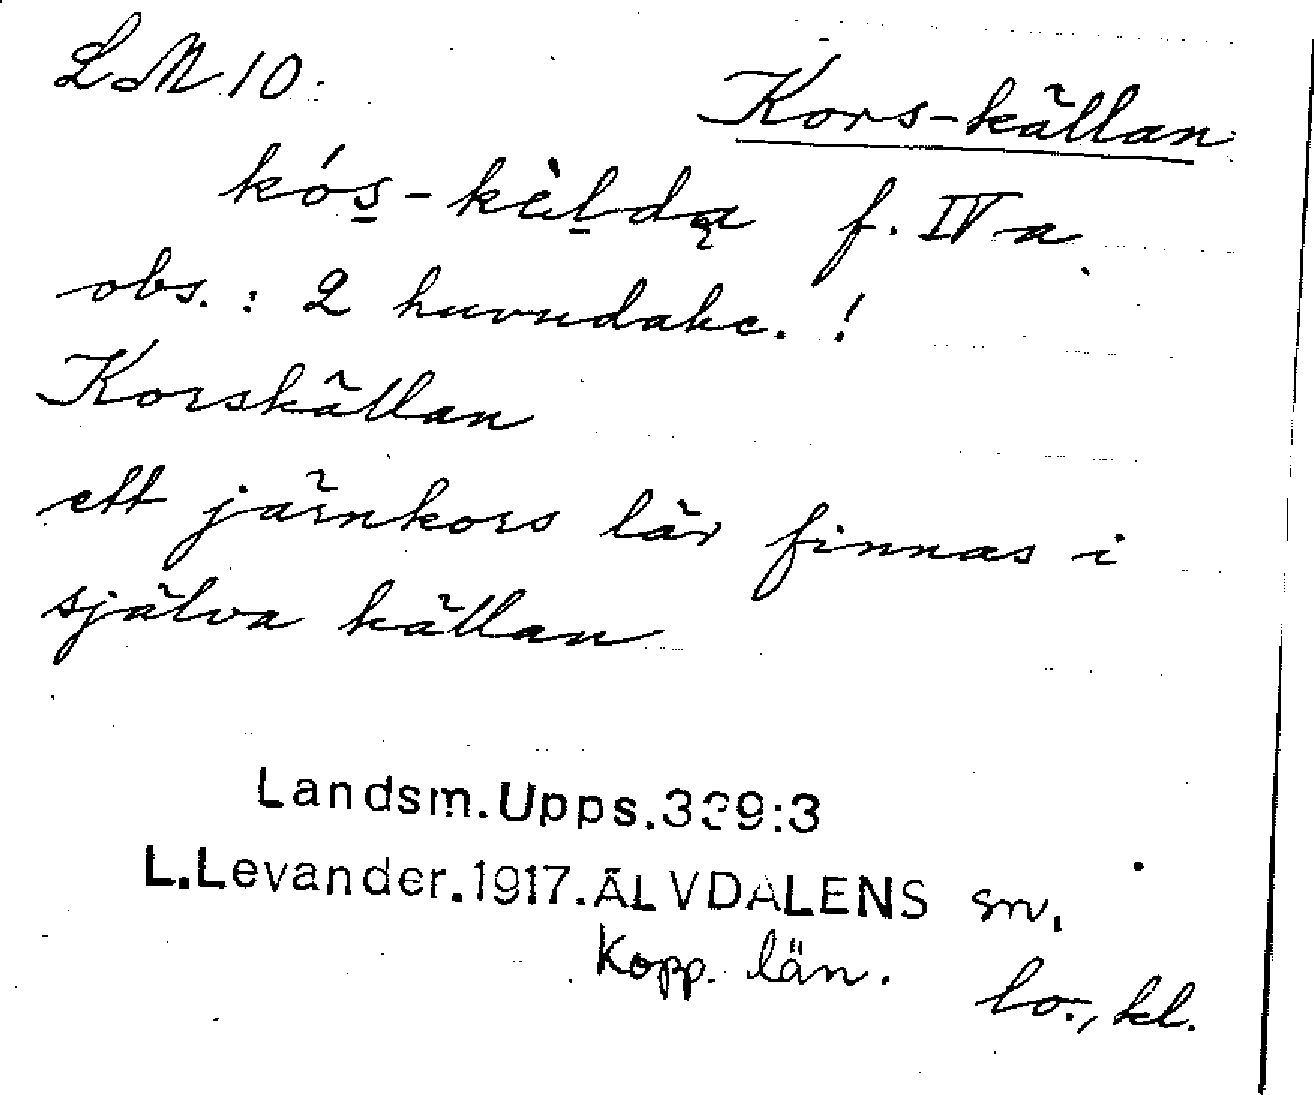 LM 10.
Kors-källan
kós̲-kèl̲dą f. IV a.
obs. : 2 huvudakc. !
Korskällan
ett järnkors lär finnas i
själva källan
Landsm.Upps.339:3
L.Levander.1917.ÄLVDALENS sn.
Kopp. län.
lo., kl.